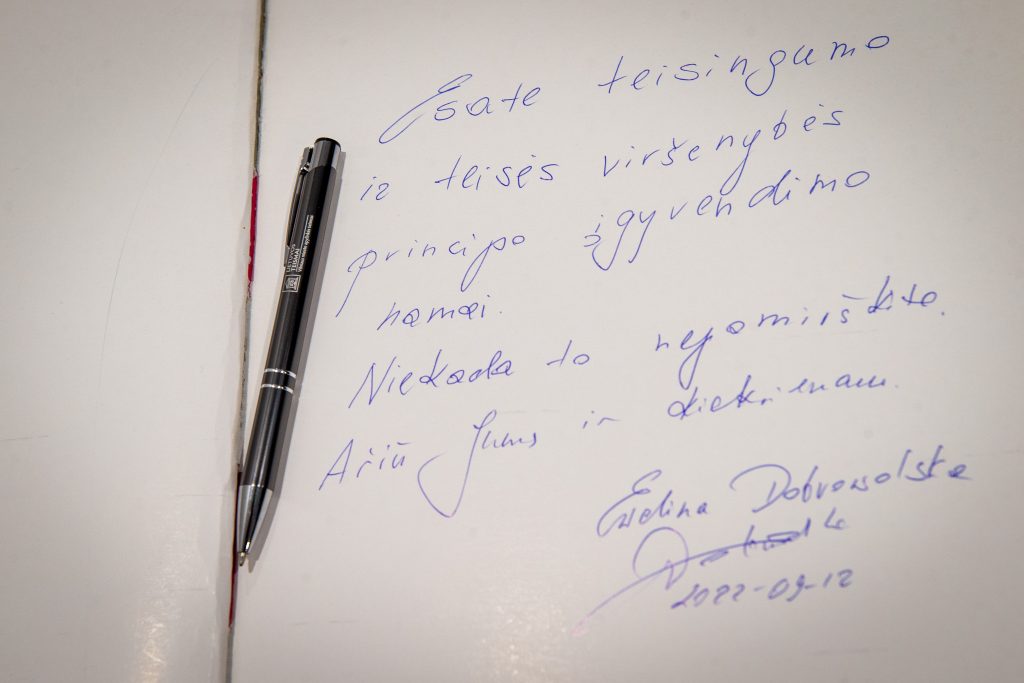 Esate teisingumo
ir teisės viršenybės
principo įgyvendimo
namai.
Niekada to nepomirškite.
Ačiū Jums ir kiekvienam.
Ewelina Dobrowolska
2022-09-12
LIETUVOS
TEISMAI